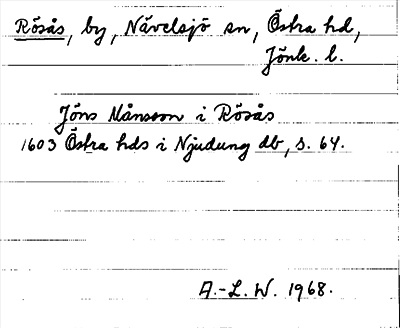 Rösås, by, Nävelsjö sn, Östra hd,
Jönk. l.
Jöns Månsson i Rösås
1603 Östra hds i Njudung db, s. 64.
A.-L. W. 1968.